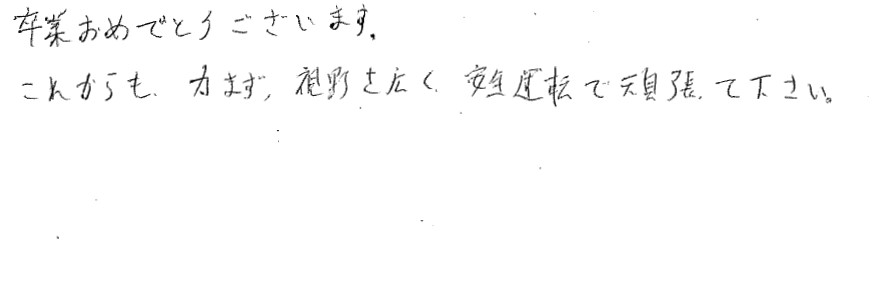 卒業おめでとうございます。
これからも、力まず、視野を広く、安全運転で頑張って下さい。